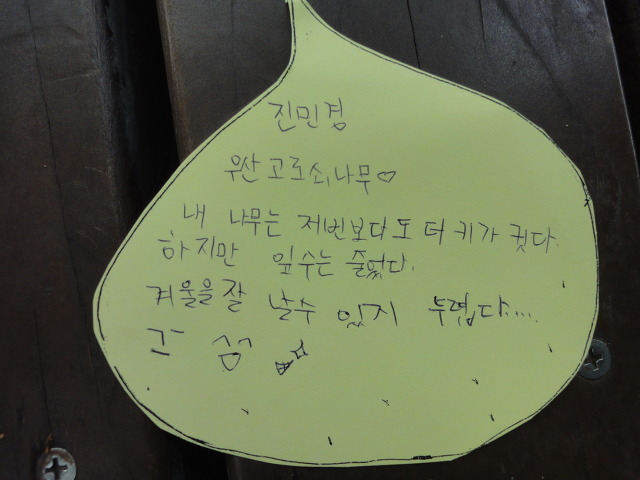 진민경
우산고로쇠나무♡
내 나무는 저번보다도 더 키가 컸다.
하지만 잎수는 줄었다.
겨울을잘 날수 있지 두렵다....